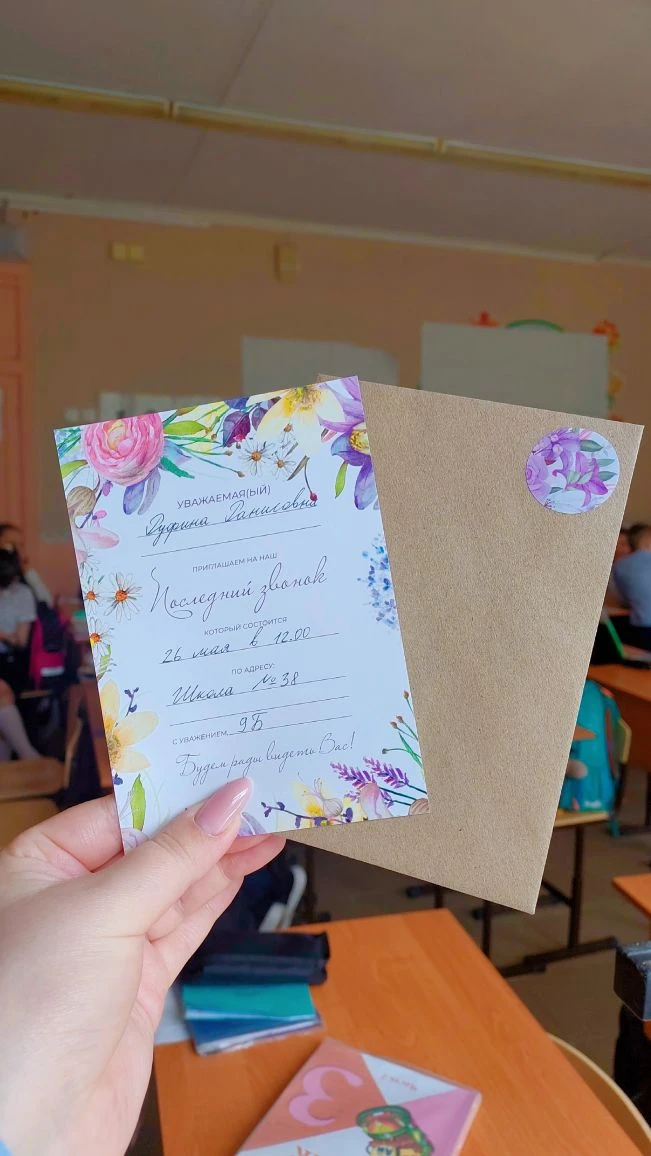 УВАЖАЕМАЯ(ЫЙ)
Руфина Данисовна
ПРИГЛАШАЕМ НА НАШ
Последний звонок
КОТОРЫЙ СОСТОИТСЯ
26 мая в 12.00
ПО АДРЕСУ:
Школа №38
С УВАЖЕНИЕМ, 9Б
Будем рады видеть Вас!
3
Часть